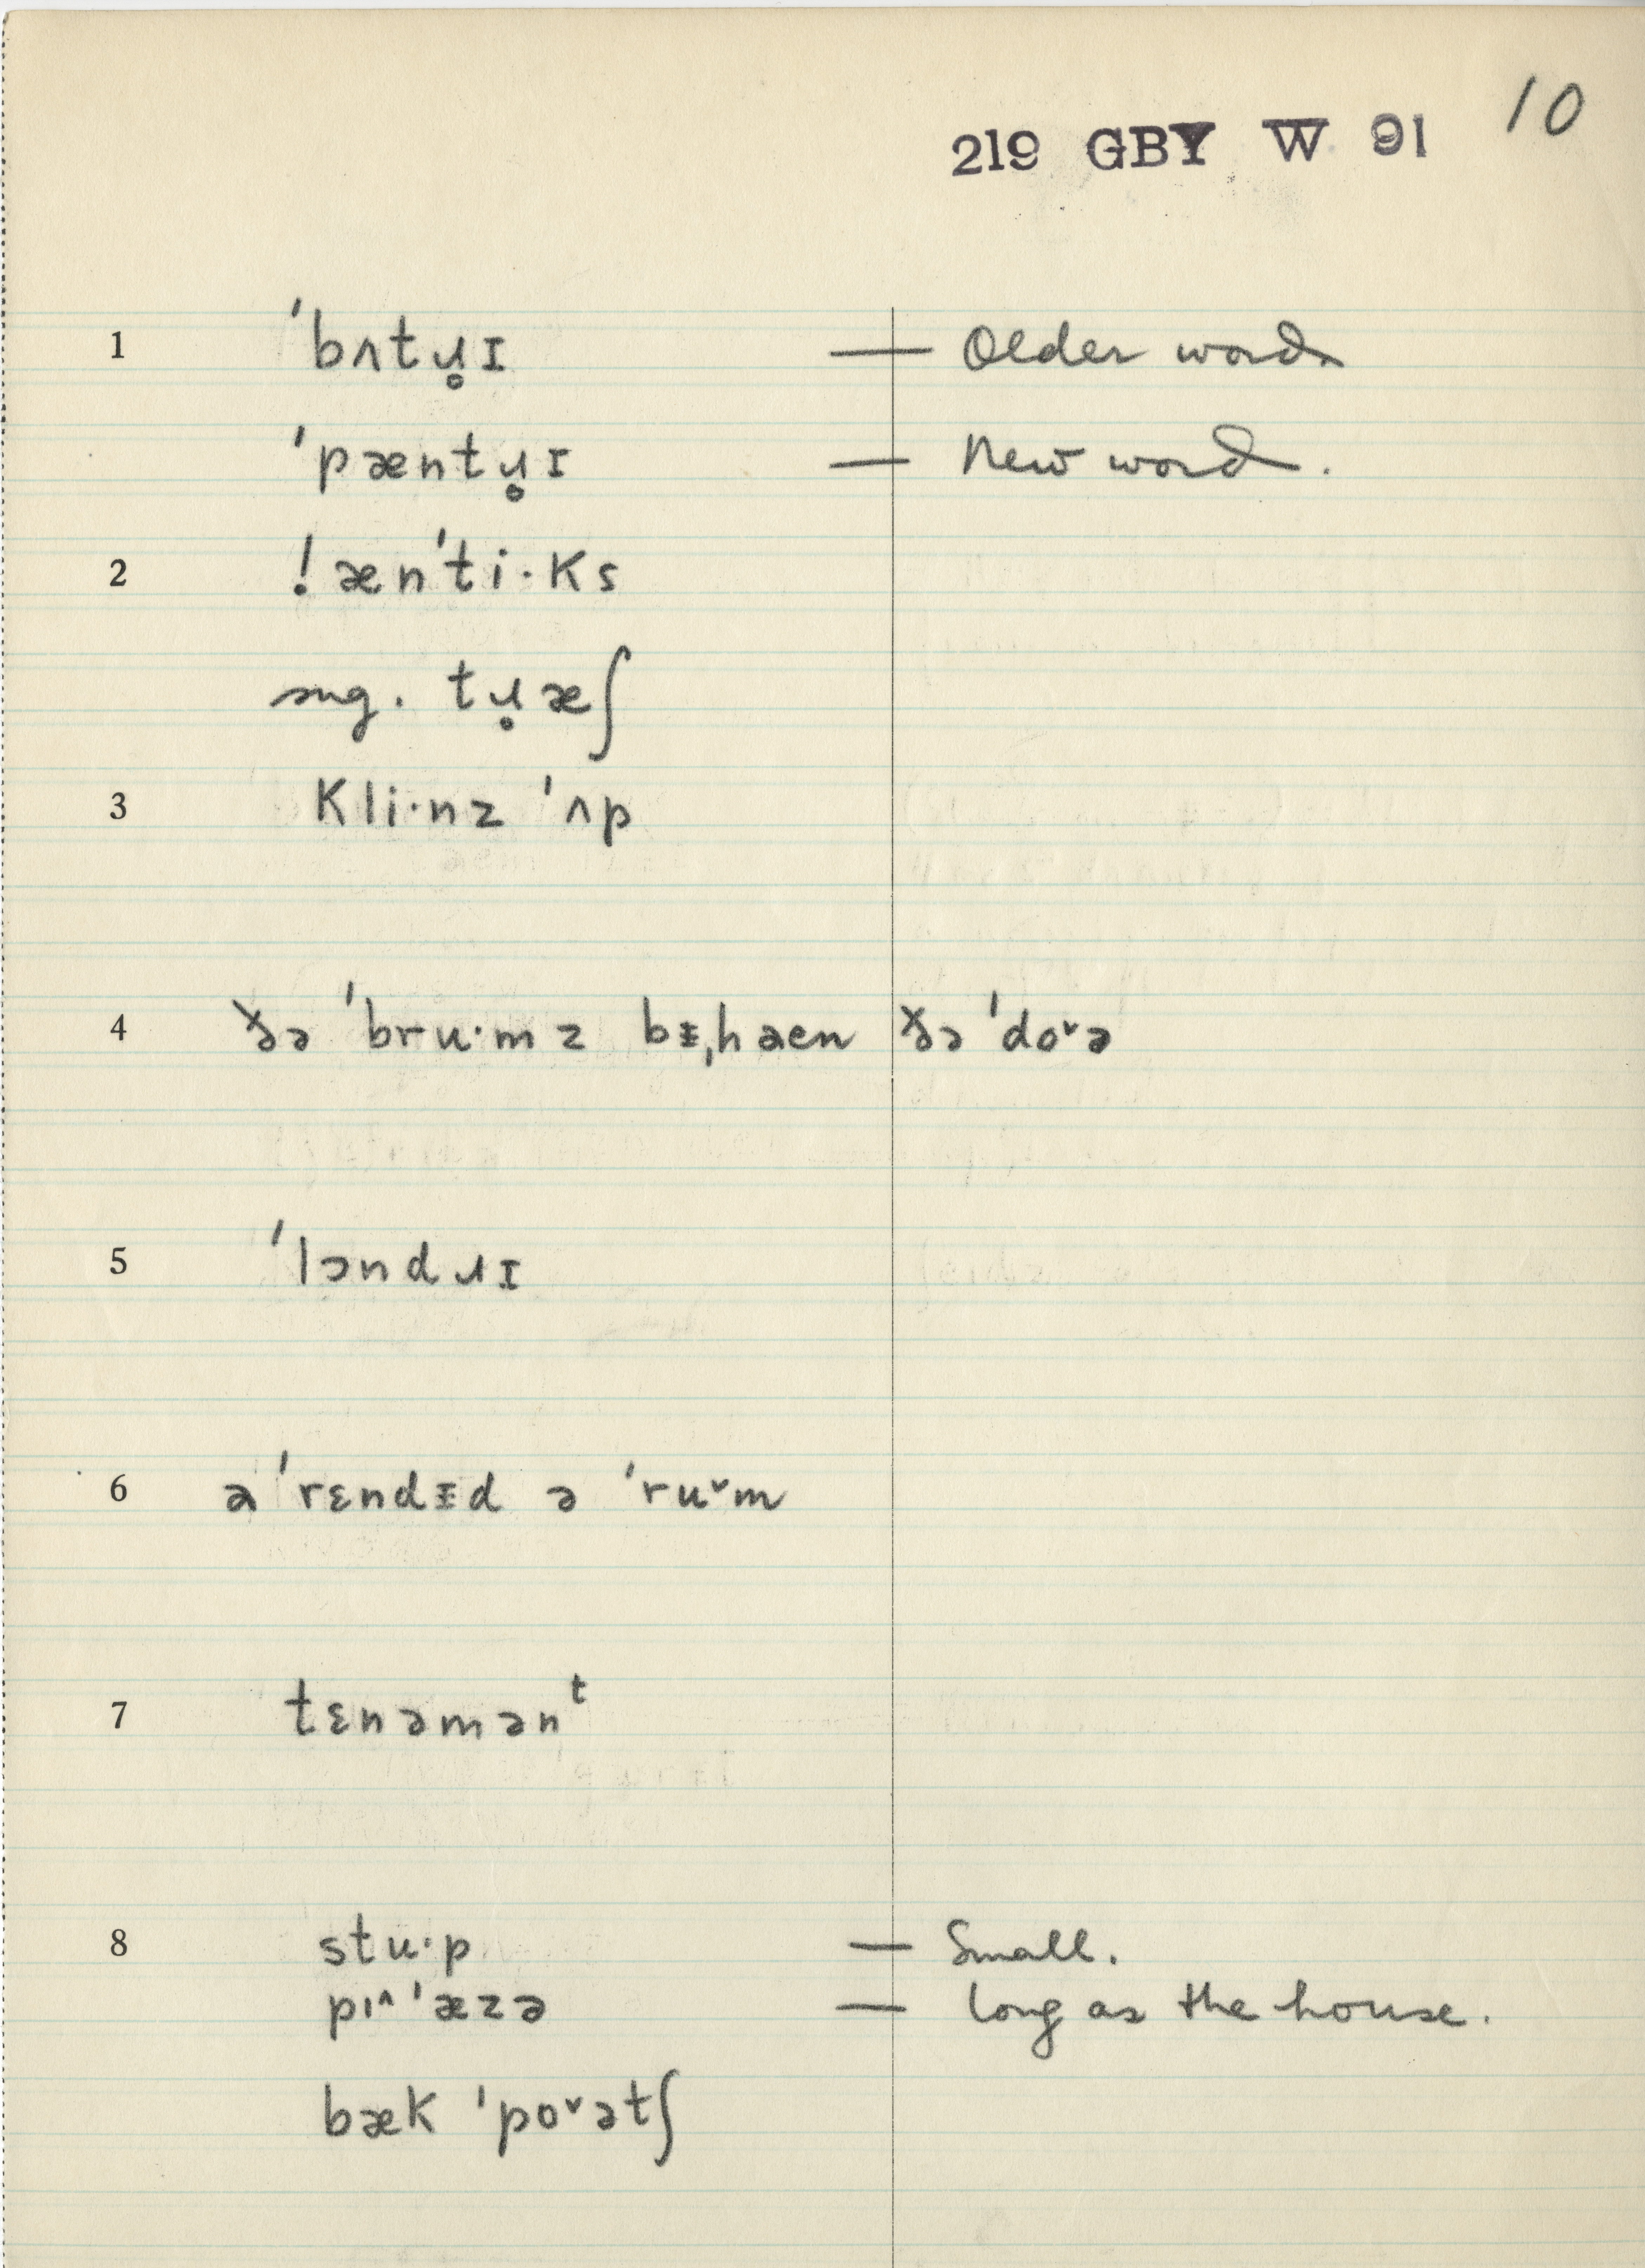 10
219 GBY W 91
1 ˈbʌtɹ̥ɪ — Older word
ˈpæntɹ̥ɪ — New word.
2 ! ænˈti·ks
sug. tɹ̥æʃ
3 kli·nz ˈʌp
4 ðə ˈbru·mz bᵻˌhaen ðə ˈdo˅ə
5 ˈlɔndɹɪ
6 a ˈrɛndᵻd ə ˈru˅m
7 tɛnəmənᵗ
8 stu·p — Small.
pɪ^ˈæzə — long as the house.
bæk ˈpo˅ətʃ